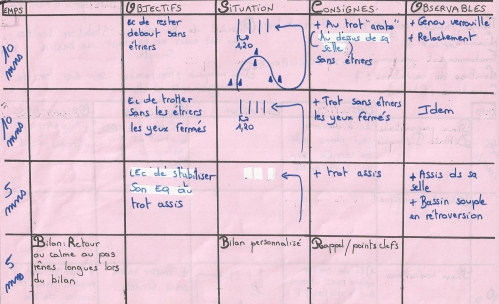 TEMPS OBJECTIFS SITUATION CONSIGNES OBSERVABLES
10 mns
Ec de rester
debout sans
étriers
1,20
+ Au trot "arabe"
(Au dessus de sa
selle)
sans étriers
+ Genou verrouillé
+ Relachement
10 mns
Ec de trotter
sans les étriers
les yeux fermés
1,20
+ Trot sans étriers
les yeux fermés
Idem
5 mns
Ec de stabiliser
Son EQ au
trot assis
+ trot assis
+ Assis ds sa
selle
+ Bassin souple
en rétroversion
5 mns
Bilan: Retour
au calme au pas
rênes longues lors
du bilan
Bilan personnalisé
Rappel/points clefs